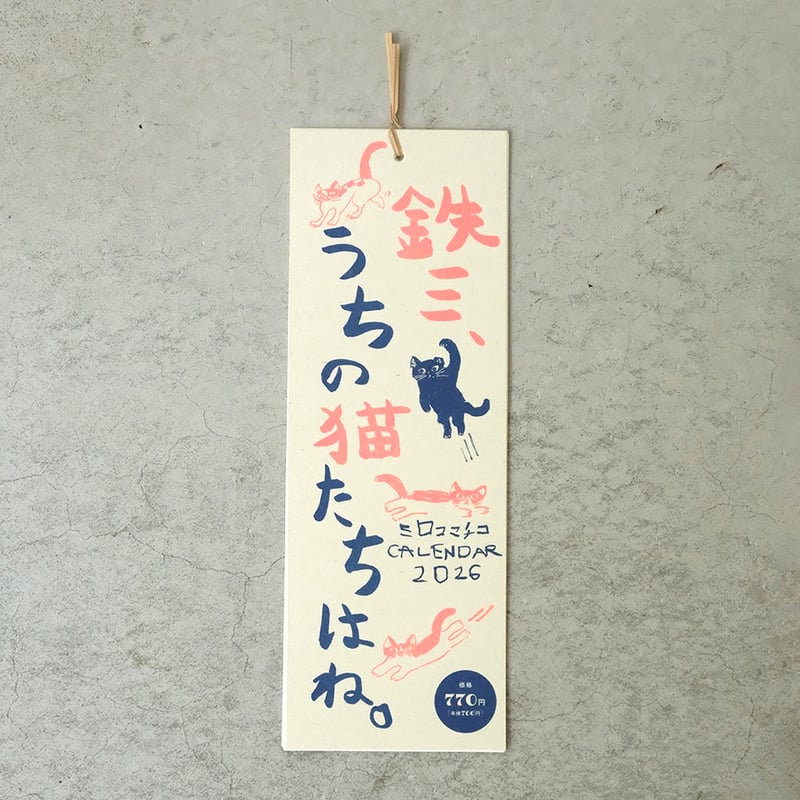 鉄三、
うちの猫たちはね。
ミロコマチコ
CALENDAR
2026
価格
770円
(本体700円)